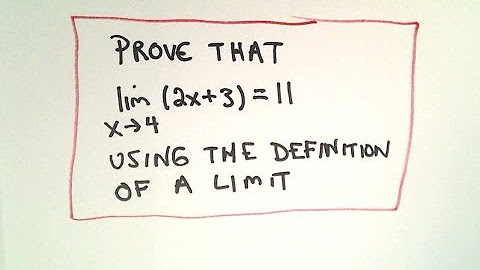 PROVE THAT
lim (2x+3) = 11
x→4
USING THE DEFINITION
OF A LIMIT